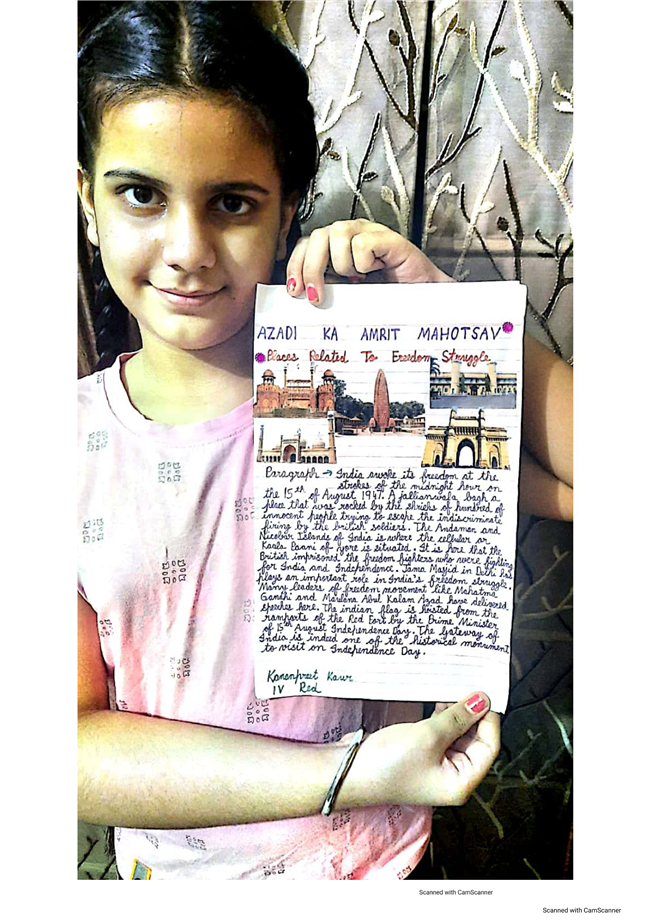 AZADI KA AMRIT MAHOTSAV
Places Related To Freedom Struggle
Paragraph → India awoke its freedom at the
strokes of the midnight hour on
the 15th of August 1947. A jallianwala bagh a
place that was rocked by the shrieks of hundred of
innocent people trying to escape the indiscriminate
firing by the british soldiers. The Andaman and
Nicobar Islands of India is where the cellular or
Kaala Paani of yore is situated. It is here that the
British imprisoned the freedom fighters who were fighting
for India and Independence. Jama Masjid in Delhi has
plays an important role in India's freedom struggle.
Many leaders of freedom movement like Mahatma
Gandhi and Maulana Abul Kalam Azad have delivered
speeches here. The indian flag is hoisted from the
ramparts of the Red Fort by the Prime Minister
of 15th August Independence Day. The Gateway of
India is indeed one of the historical monument
to visit on Independence Day.
Kaur
IV Red
Scanned with CamScanner
Scanned with CamScanner